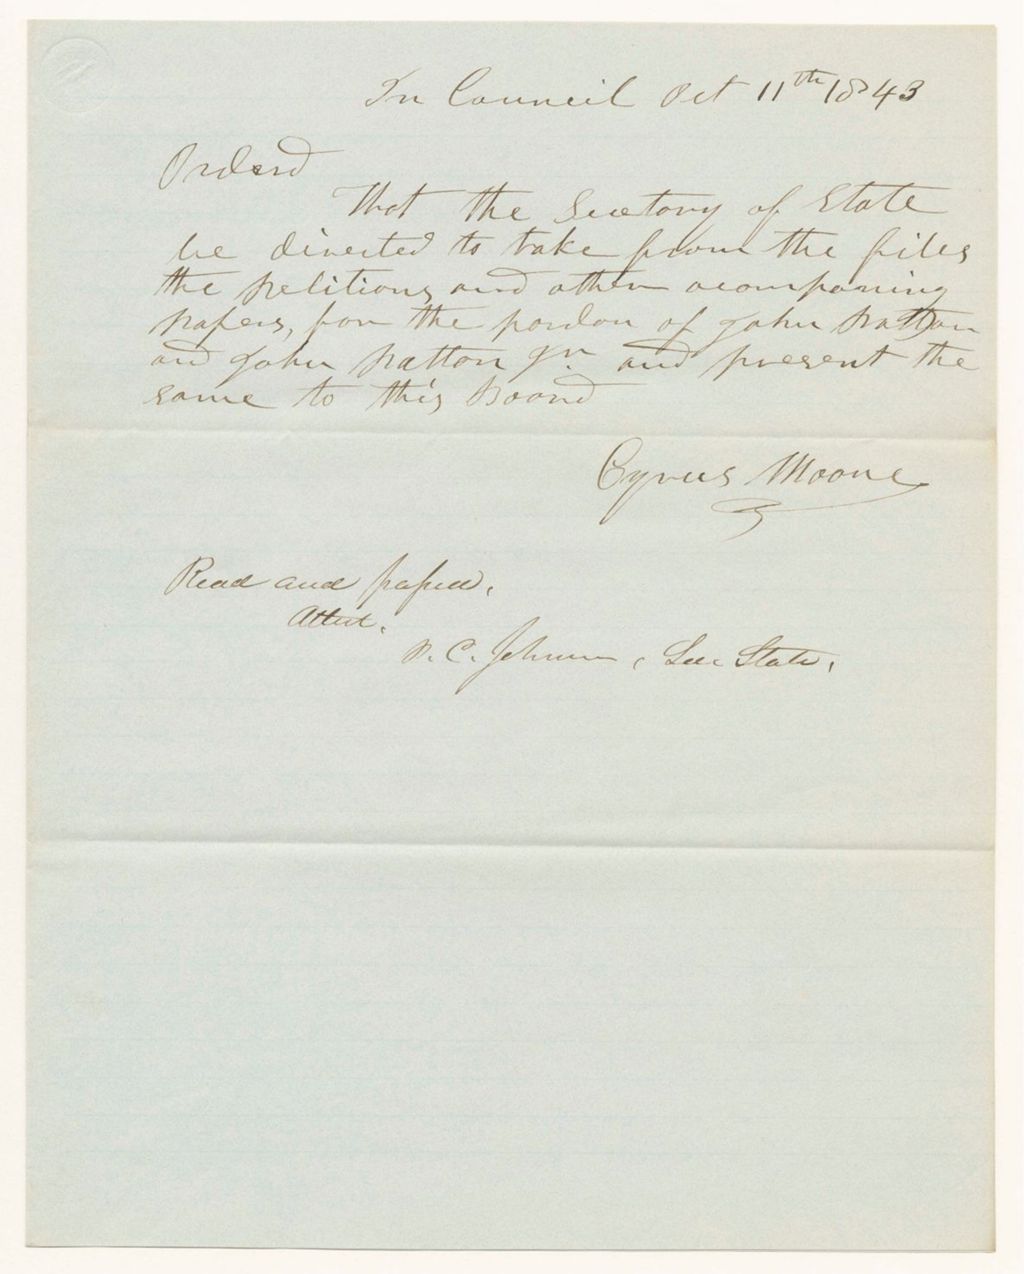 In Council Oct 11th 1843
Orderd
That the Secetory of State
be directed to take from the files
the petitions and other acompaning
papers, for the pardon of John Patton
and John Patton Jr. and present the
same to this Board
Cyrus Moore
Read and passed.
Attest.
P. C. Johnson, Sec State.